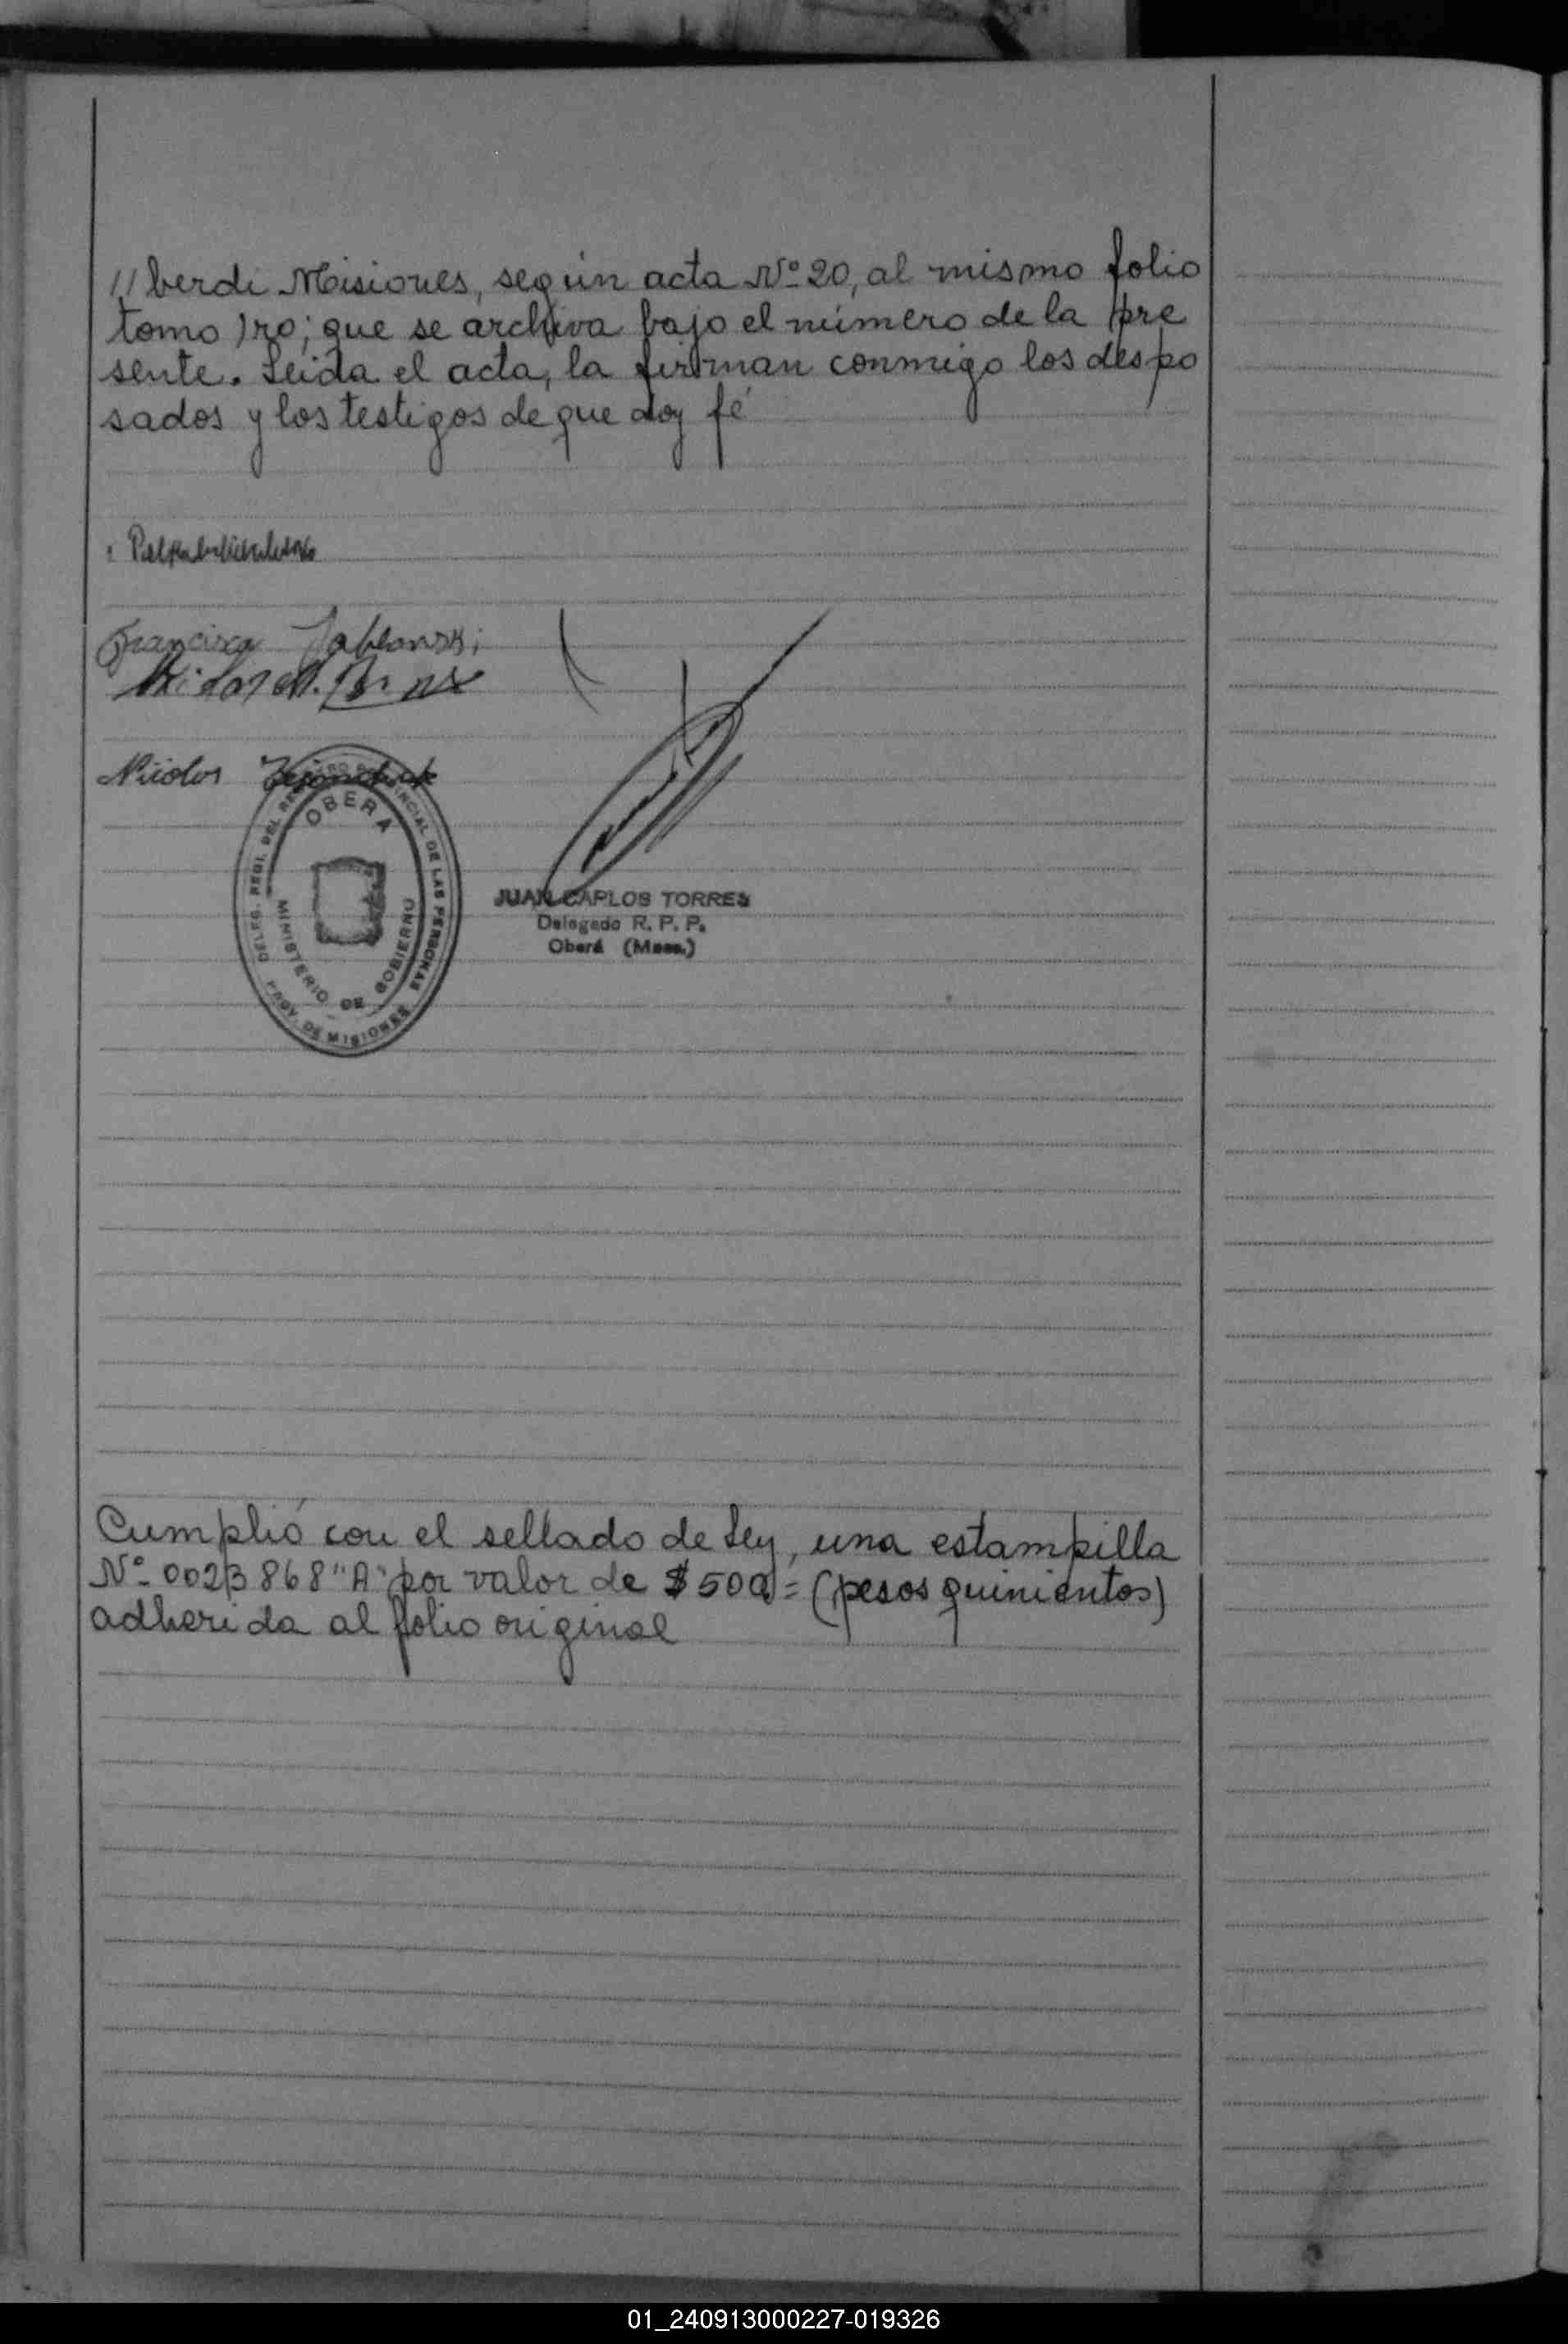 //berdi Misiones, según acta Nº 20, al mismo folio
tomo 1ro; que se archiva bajo el número de la pre
sente. Leida el acta, la firman conmigo los despo
sados y los testigos de que doy fé
Francisca Jablonski
Nicolas
DELEG. REGI. DEL REGISTRO PROVINCIAL DE LAS PERSONAS
OBERA
MINISTERIO DE GOBIERNO
PROV. DE MISIONES
JUAN CARLOS TORRES
Delegado R. P. P.
Oberá (Mnes.)
Cumplió con el sellado de Ley, una estampilla
Nº 0023868 "A" por valor de $ 500 = (pesos quinientos)
adherida al folio original
01_240913000227-019326